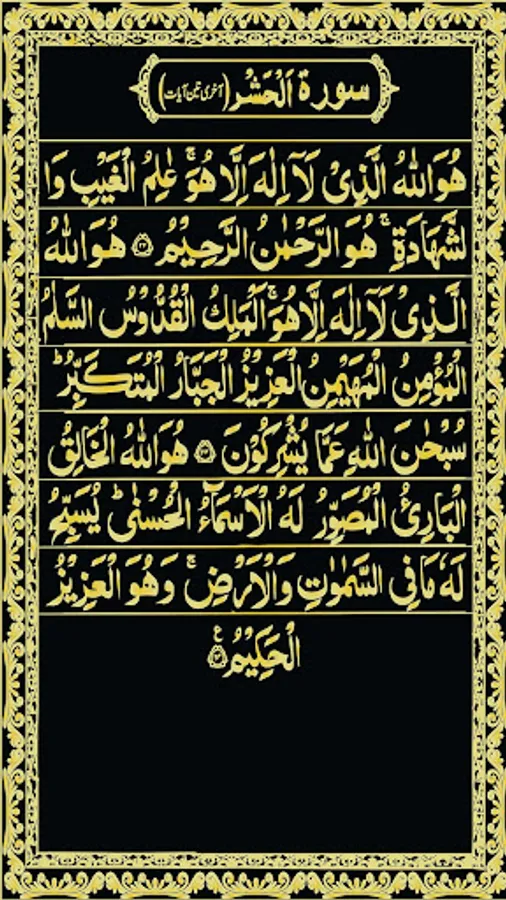 سورة الحشر (آخری تین آیات)
هُوَاللهُ الَّذِیْ لَاۤ اِلٰهَ اِلَّا هُوَۚ عٰلِمُ الْغَیْبِ وَا
لشَّهَادَةِۚ هُوَ الرَّحْمٰنُ الرَّحِیْمُ ﴿۲۲﴾ هُوَاللهُ
الَّذِیْ لَاۤ اِلٰهَ اِلَّا هُوَۚ اَلْمَلِكُ الْقُدُّوْسُ السَّلٰمُ
الْمُؤْمِنُ الْمُهَیْمِنُ الْعَزِیْزُ الْجَبَّارُ الْمُتَكَبِّرُؕ
سُبْحٰنَ اللهِ عَمَّا یُشْرِكُوْنَ ﴿۲۳﴾ هُوَاللهُ الْخَالِقُ
الْبَارِئُ الْمُصَوِّرُ لَهُ الْاَسْمَآءُ الْحُسْنٰیؕ یُسَبِّحُ
لَهٗ مَا فِی السَّمٰوٰتِ وَالْاَرْضِۚ وَهُوَ الْعَزِیْزُ
الْحَكِیْمُ ﴿۲۴﴾ ع